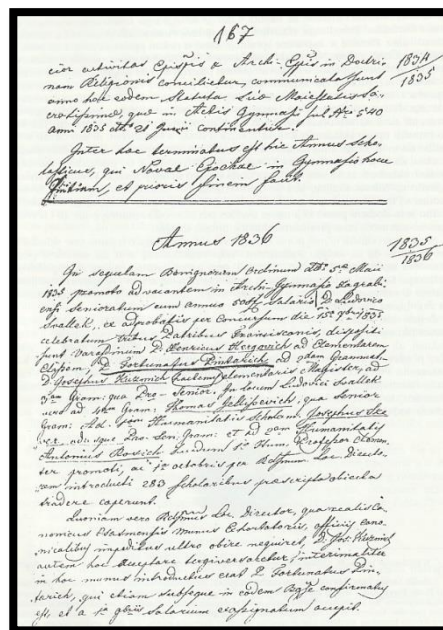 167
cior activitas Episcopis & Archi-Eppis in Doctri-
nam Religionis concilietur, communicata sunt
anno hoc eodem Statuta Suae Majestatis Sa-
cratissimae, quae in Actis Gymnasii sub Nro 540
anni 1835 dtto 21 Junii continentur.
1834
1835
Inter haec terminatus est hic Annus scho-
lasticus, qui Novae Epochae in Gymnasio hocce
Initium, et prioris finem facit.
Annus 1836
1835
1836
In sequelam Benignarum Ordinum dtto 5ae Maii
1835 promoto ad vacantem in Archi-Gymnasio Zagrabi-
ensi Senioratum cum annuo salario D. Ludovico
Svallek, ex adprobatis per Concursum die 15
celebratum Viribus Patribus Franciscanis, dispositi
sunt Varasdinum P. Henricus Hergovich ad Elementarem
Classem, P. Fortunatus Pintarich ad Grammat.
D. Josephus Kuzmich hactenus elementaris Magister, ad
3am Gram: qua Pro-Senior. In locum Ludovici Svallek
vero ad 4tam Gram: Thomas Jellissevich, qua Senior
Gram: Ad 1am Humanitatis Scholam Josephus
aeque Pro-Sen. Gram: et ad 2am Humanitatis
Antonius Rosich eiusdem 1ae Hum. Professor elemen-
ter promoti, ac 1a octobris per Rdssmum Loc. Directo-
rem introducti 283 Scholaribus praescripta obiecta
tradere coeperunt.
Quoniam vero Rdssmus Loc. Director, qua realis Ca-
nonicus Chasmensis munus Exhortatoris, officiis cano-
nicalibus impeditus ultro obire nequiret, D. Jos. Kuzmich
autem hoc acceptare tergiversaretur, interimaliter
in hoc munus introductus erat P. Fortunatus Pin-
tarich, qui etiam subseque in eodem Bgne confirmatus
est, et a 1a 9bris salarium exassignatum accepit.